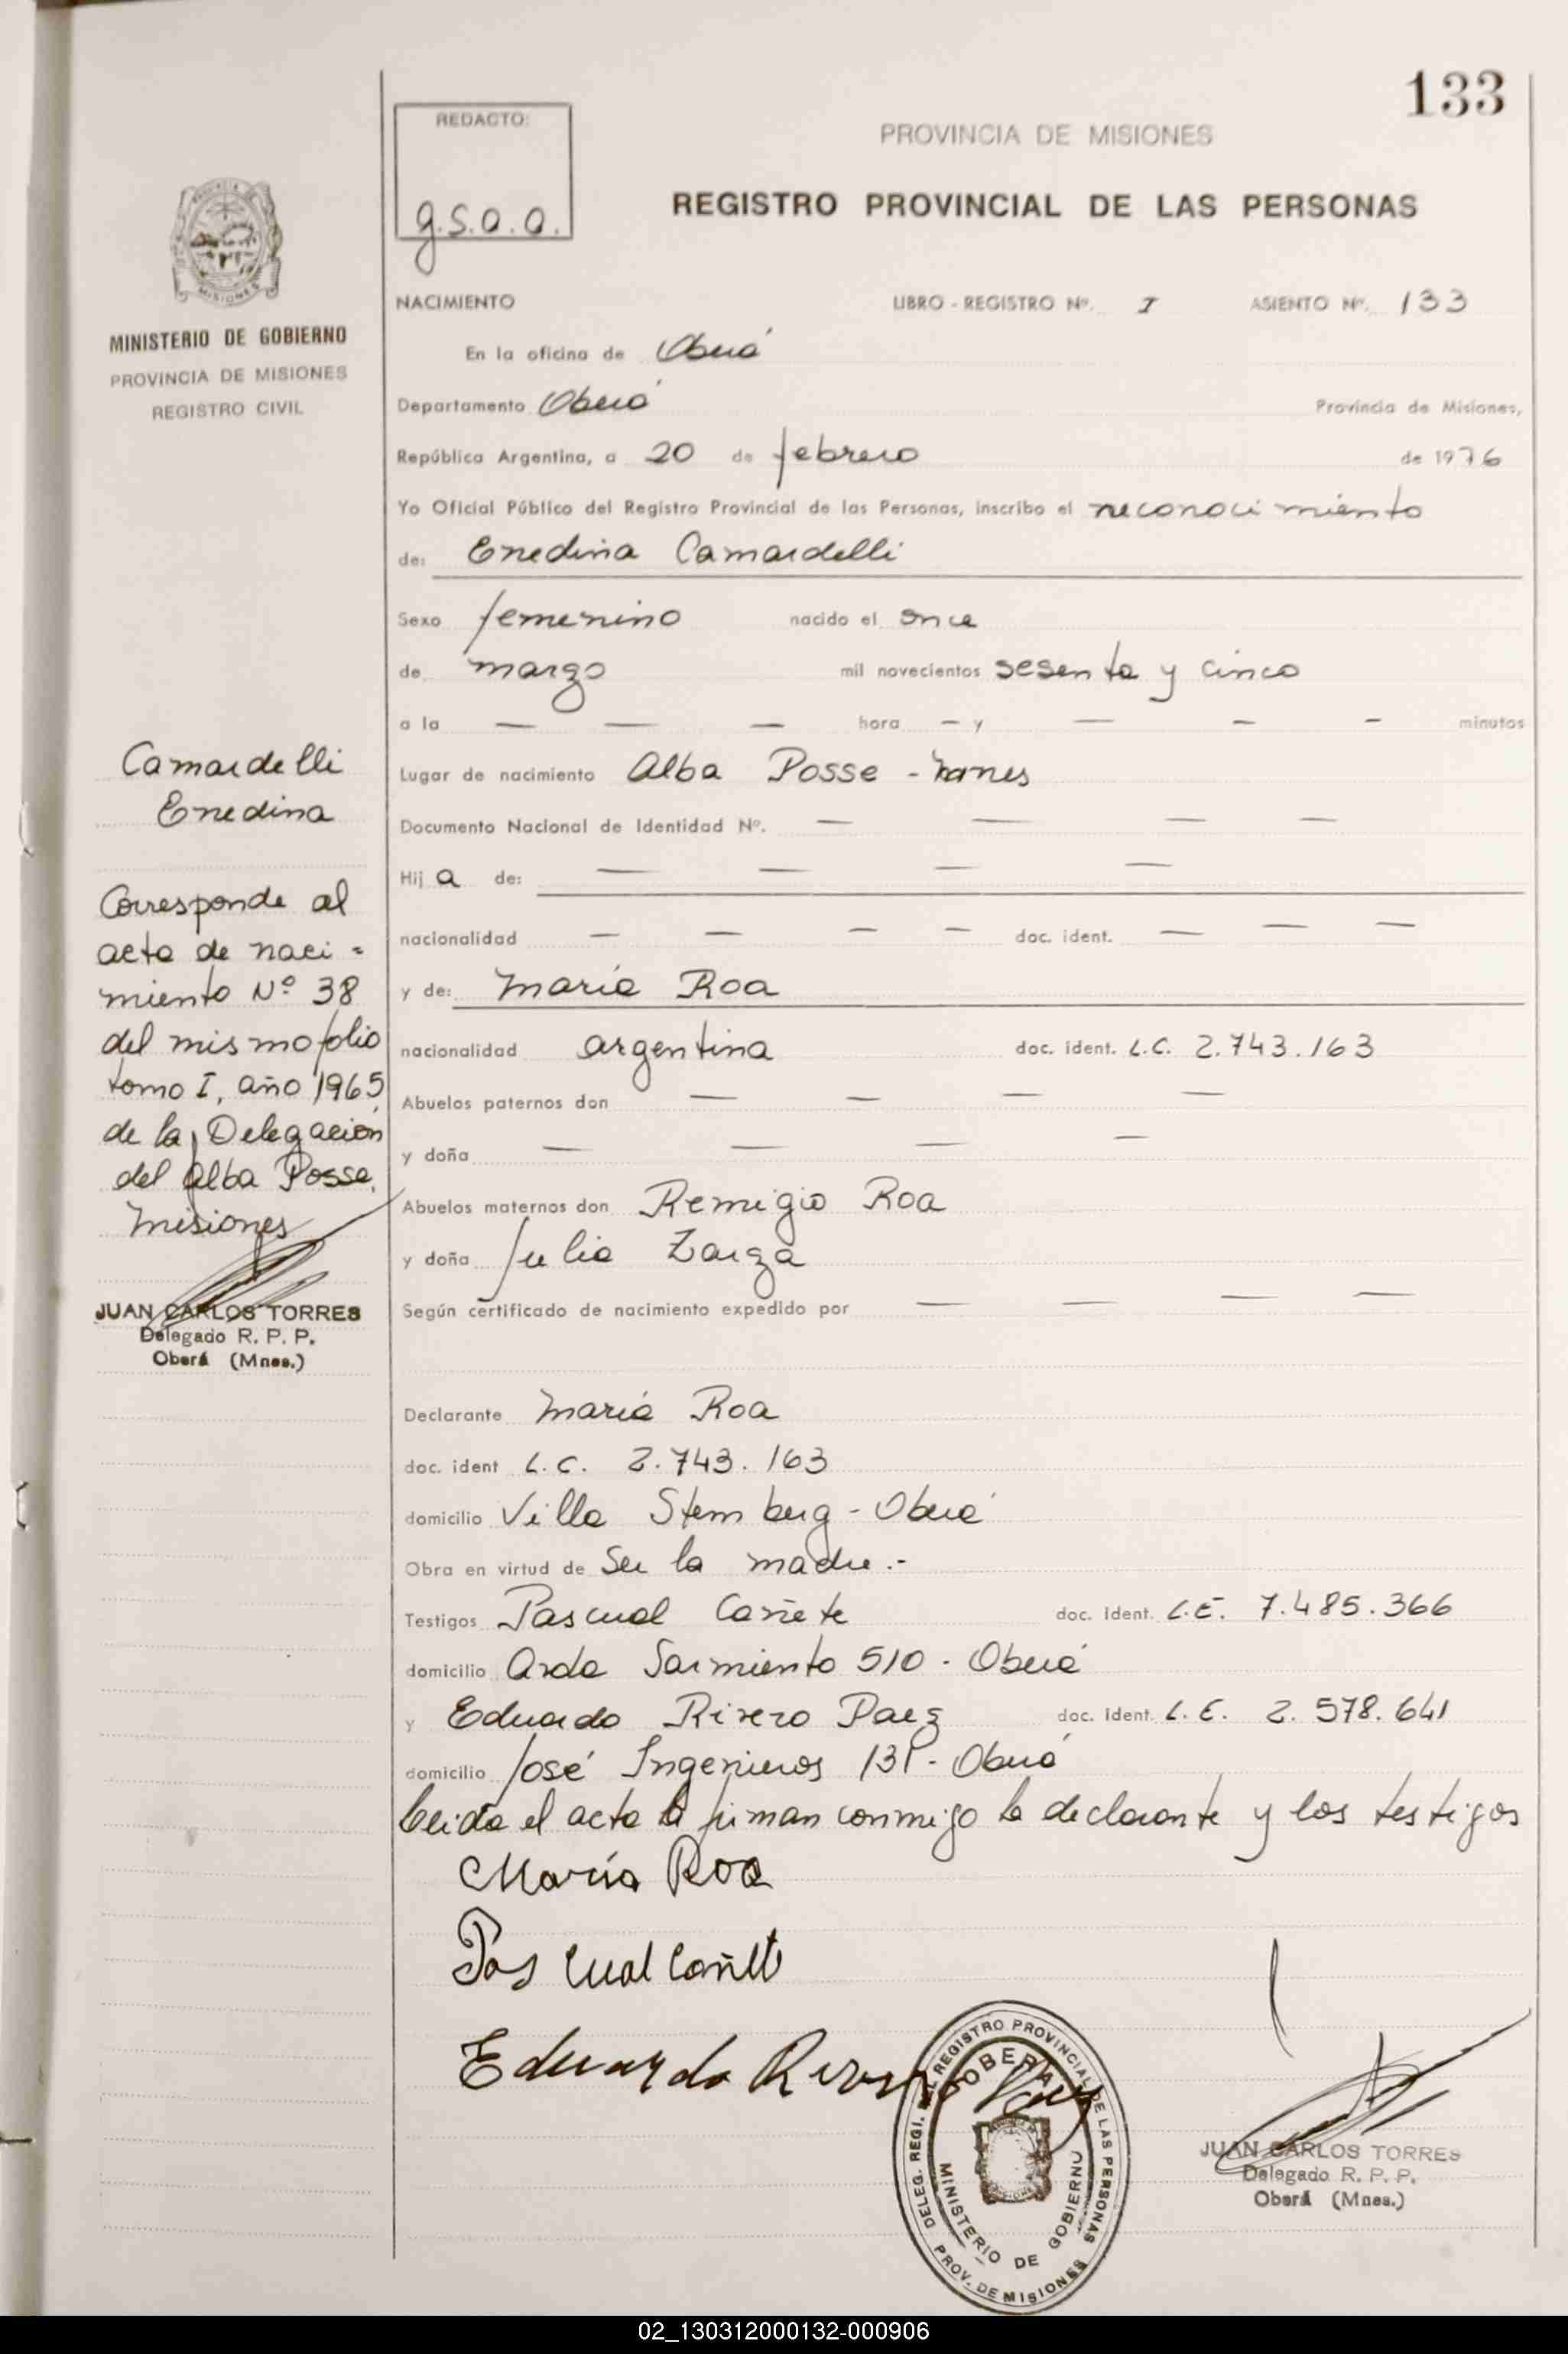 133
REDACTO:
g.s.a.a.
PROVINCIA DE MISIONES
REGISTRO PROVINCIAL DE LAS PERSONAS
MISIONES
MINISTERIO DE GOBIERNO
PROVINCIA DE MISIONES
REGISTRO CIVIL
NACIMIENTO LIBRO - REGISTRO Nº. I ASIENTO Nº. 133
En la oficina de Oberá
Departamento Oberá Provincia de Misiones,
República Argentina, a 20 de febrero de 1976
Yo Oficial Público del Registro Provincial de las Personas, inscribo el reconocimiento
de: Enedina Camardelli
Sexo femenino nacido el once
de marzo mil novecientos sesenta y cinco
a la — — — hora — y — — — minutos
Lugar de nacimiento Alba Posse - Mnes
Documento Nacional de Identidad Nº. — — — —
Hij a de: — — — —
nacionalidad — — — — doc. ident. — — —
y de: María Roa
nacionalidad argentina doc. ident. L.C. 2.743.163
Abuelos paternos don — — — —
y doña — — — —
Abuelos maternos don Remigio Roa
y doña Julia Zarza
Según certificado de nacimiento expedido por — — — —
Camardelli
Enedina
Corresponde al
acta de naci =
miento Nº 38
del mismo folio
tomo I, año 1965
de la Delegación
del Alba Posse,
Misiones
JUAN CARLOS TORRES
Delegado R. P. P.
Oberá (Mnes.)
Declarante María Roa
doc. ident L.C. 2.743.163
domicilio Villa Stemberg - Oberá
Obra en virtud de ser la madre.-
Testigos Pascual Cañete doc. ident. L.E. 7.485.366
domicilio Avda Sarmiento 510 - Oberá
y Eduardo Rivero Paez doc. ident. L.E. 2.578.641
domicilio José Ingenieros 131 - Oberá
leida el acta la firman conmigo la declarante y los testigos
María Roa
Pascual Cañete
Eduardo Rivero Paez
DELEG. REGI. DEL REGISTRO PROVINCIAL DE LAS PERSONAS
PROV. DE MISIONES
MINISTERIO DE GOBIERNO
OBERA
JUAN CARLOS TORRES
Delegado R. P. P.
Oberá (Mnes.)
02_130312000132-000906